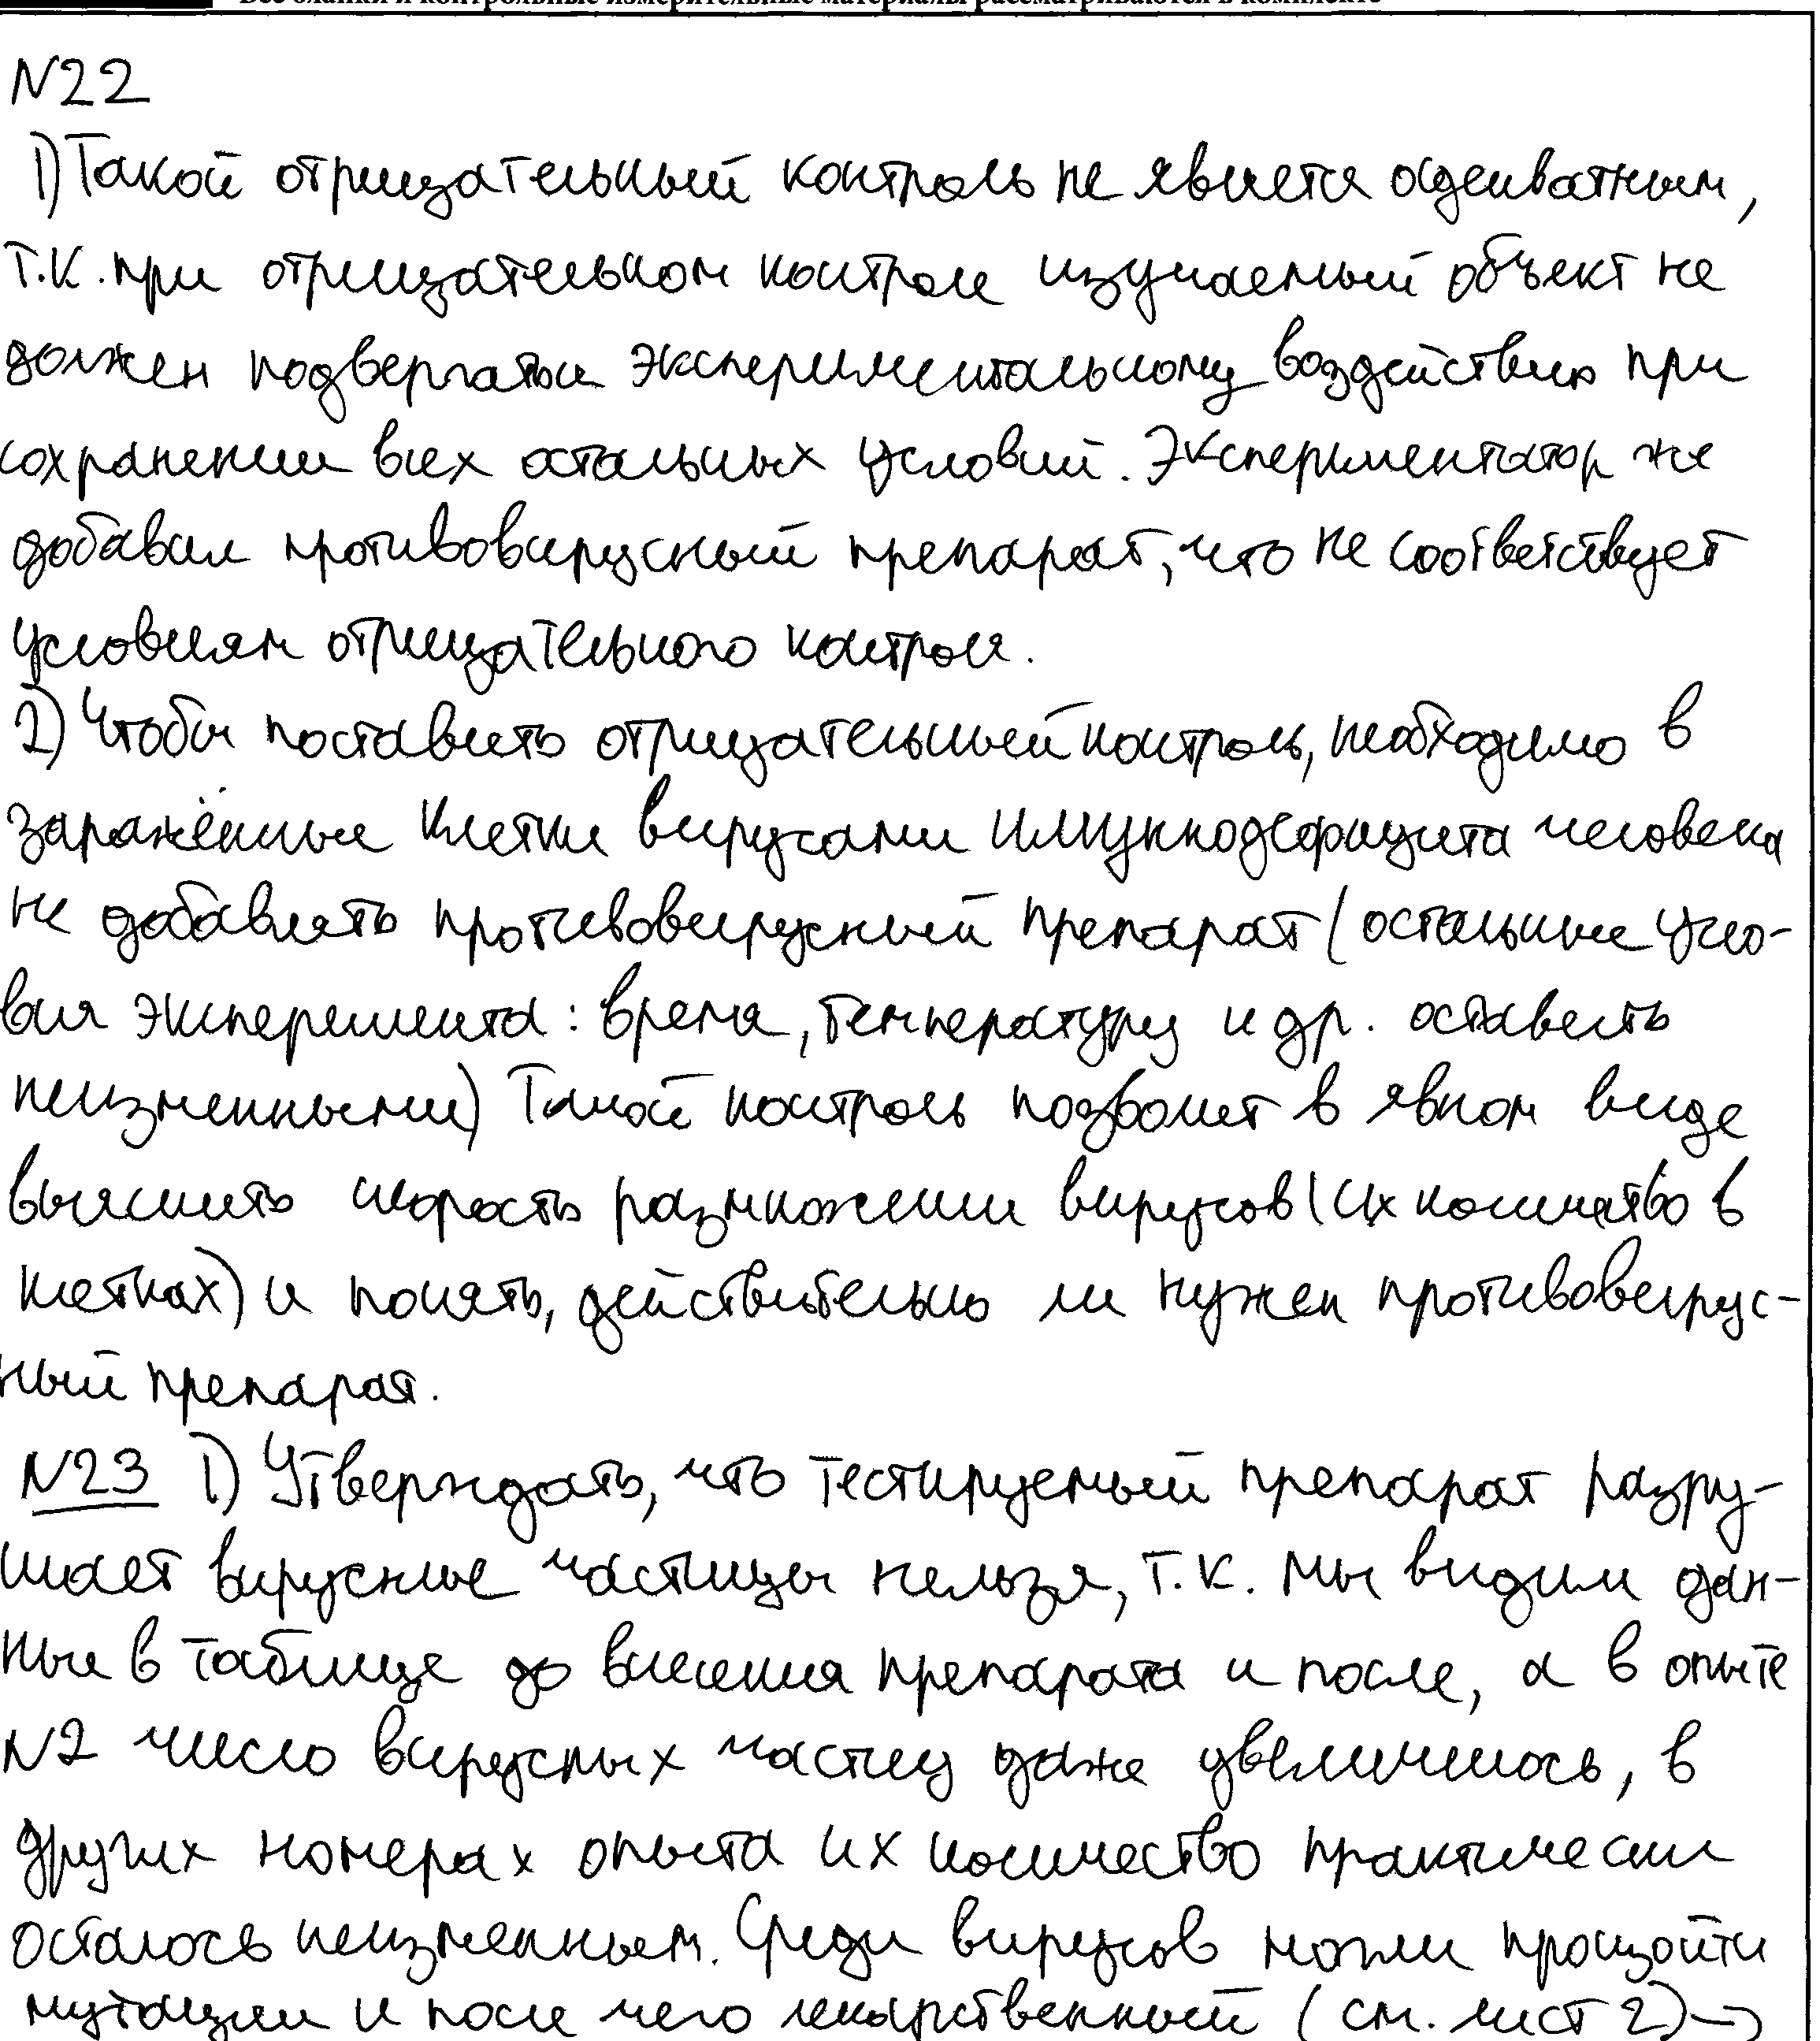 Все бланки и контрольные измерительные материалы рассматриваются в комплекте
N22
1) Такой отрицательный контроль не является адекватным,
т.к. при отрицательном контроле изучаемый объект не
должен подвергаться экспериментальному воздействию при
сохранении всех остальных условий. Экспериментатор же
добавил противовирусный препарат, что не соответствует
условиям отрицательного контроля.
2) Чтобы поставить отрицательный контроль, необходимо в
заражённые клетки вирусами иммунодефицита человека
не добавлять противовирусный препарат (остальные усло-
вия эксперимента: время, температуру и др. оставить
неизменными) Такой контроль позволит в явном виде
выяснить скорость размножении вирусов (их количество в
клетках) и понять, действительно ли нужен противовирус-
ный препарат.
N23 1) Утверждать, что тестируемый препарат разру-
шает вирусные частицы нельзя, т.к. мы видим дан-
ные в таблице до внесения препарата и после, а в опыте
N2 число вирусных частиц даже увеличилось, в
других номерах опыта их количество практически
осталось неизменным. Среди вирусов могли произойти
мутации и после чего лекарственный (см. лист 2) →